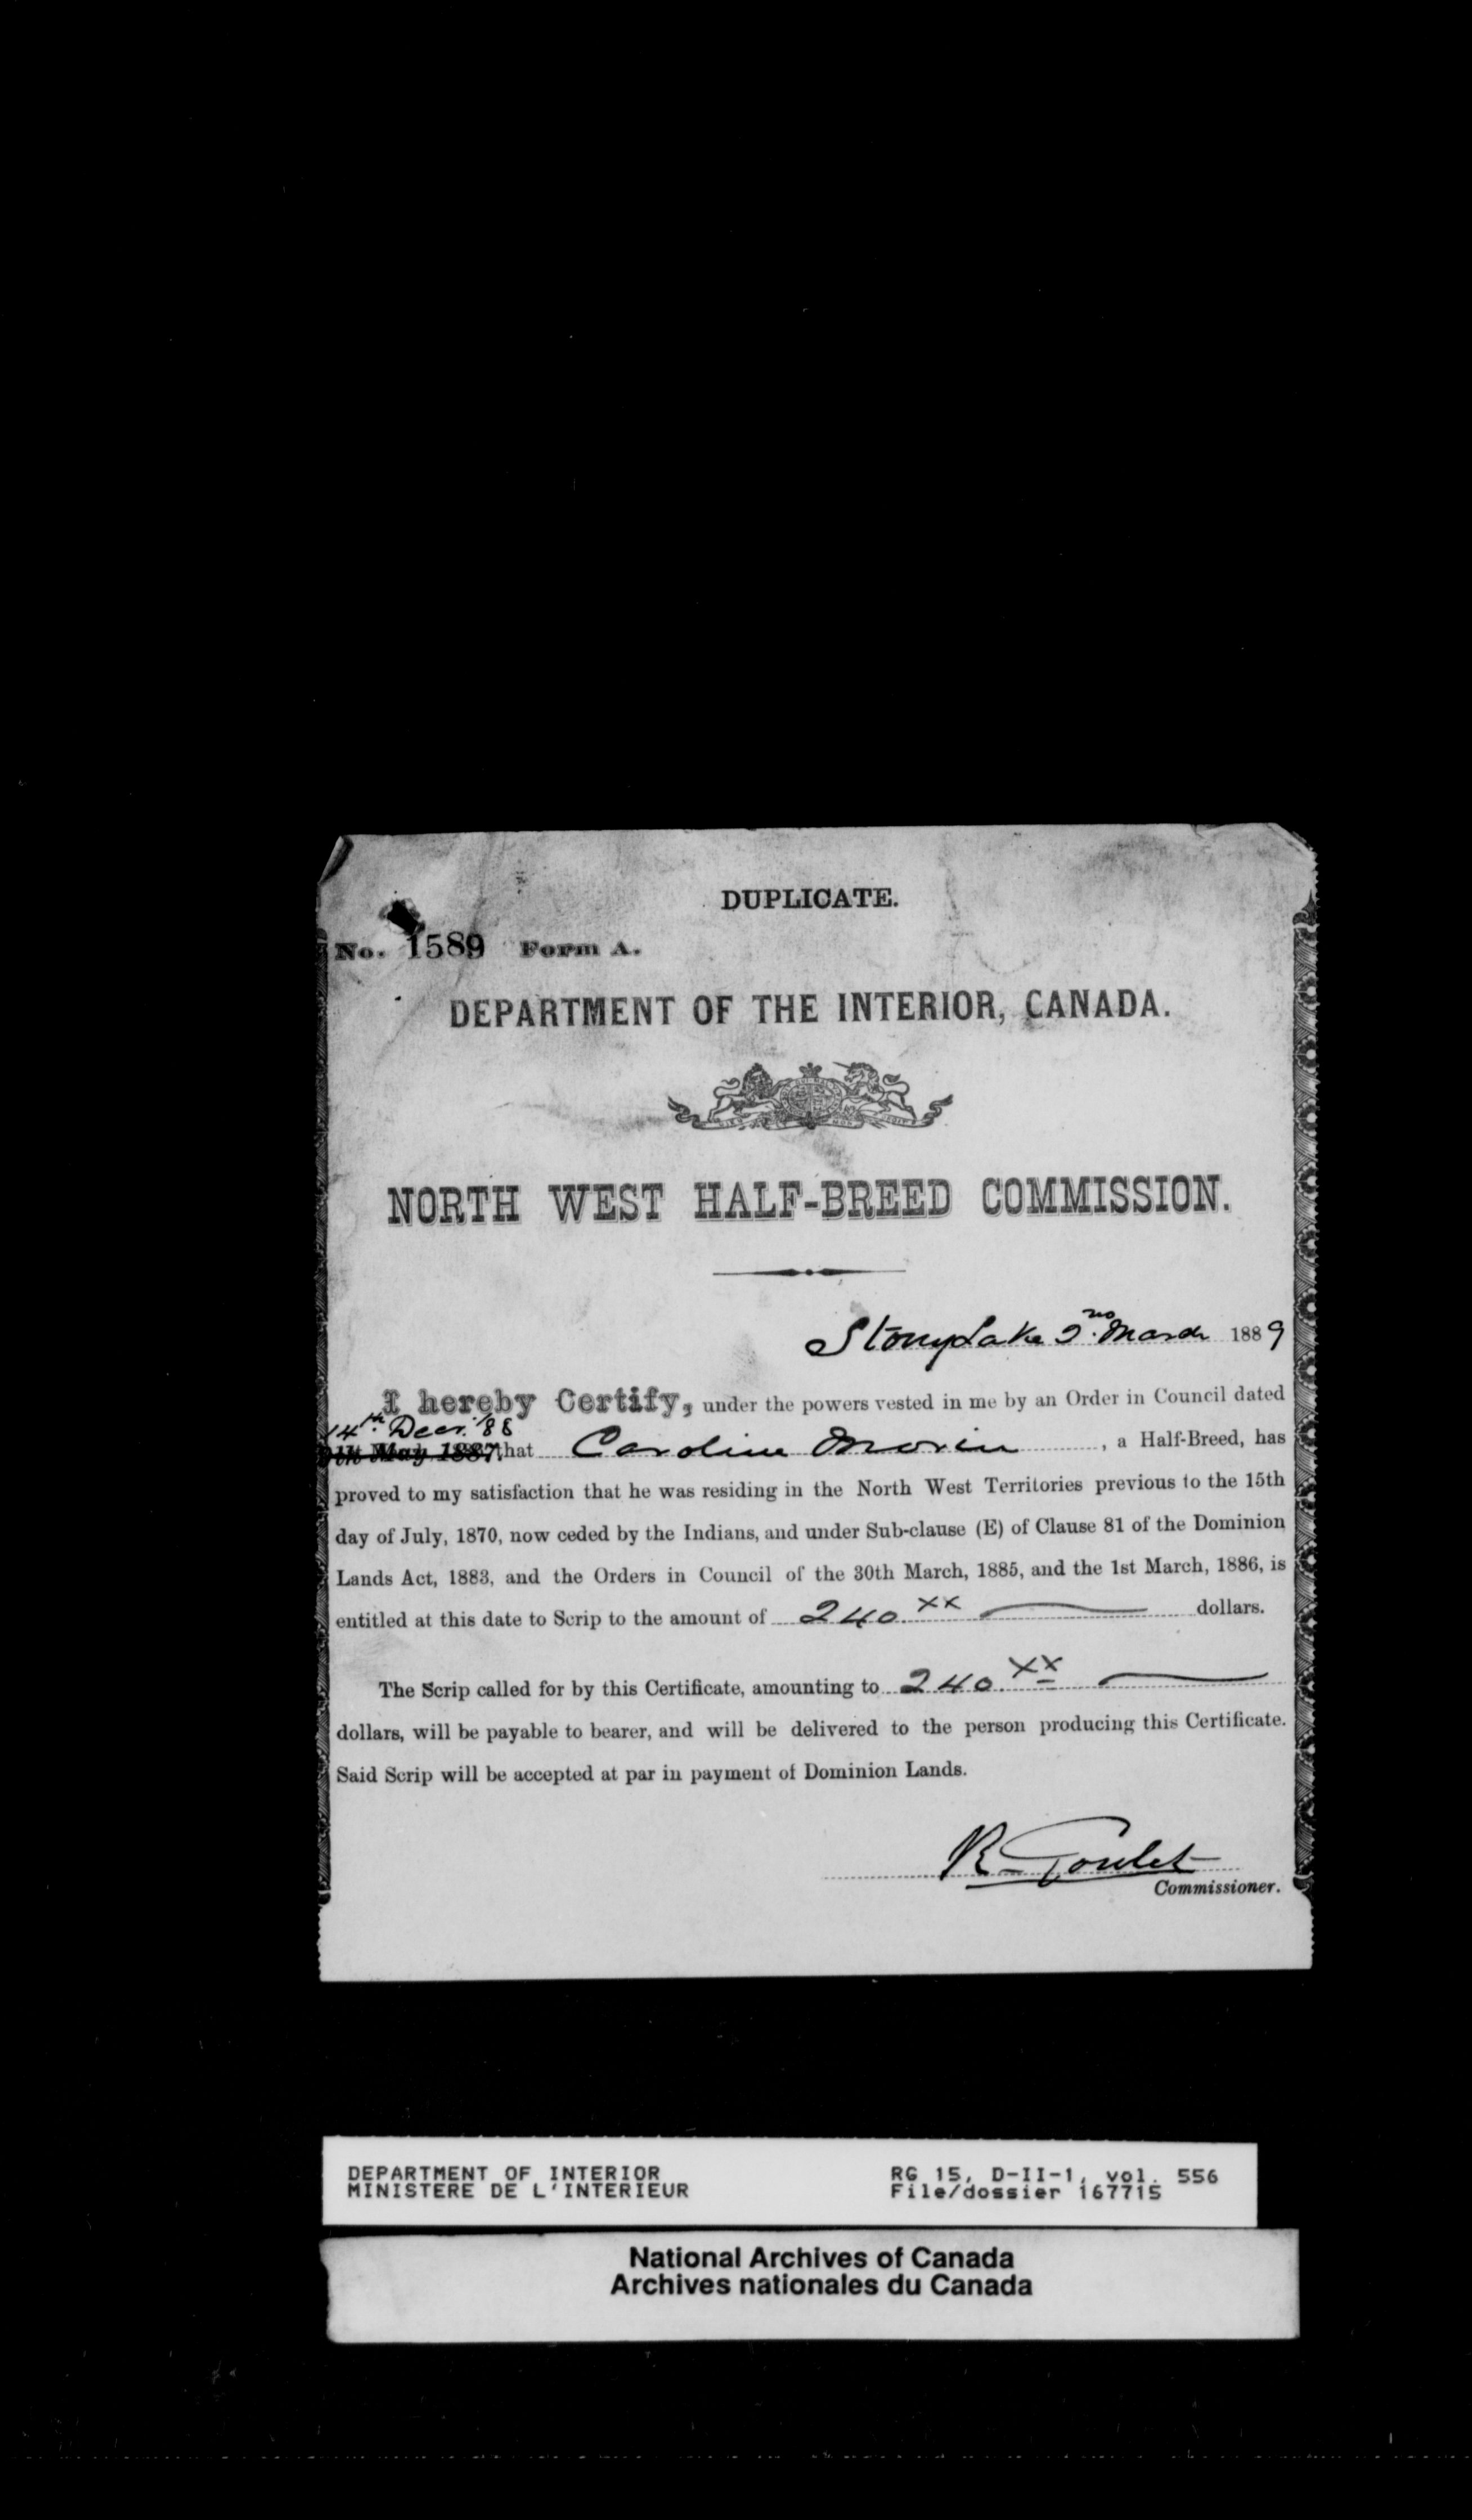 DUPLICATE.
No. 1589 Form A.
DEPARTMENT OF THE INTERIOR, CANADA.
NORTH WEST HALF-BREED COMMISSION.
Stony Lake 2nd March 1889
I hereby Certify, under the powers vested in me by an Order in Council dated
14th Decr. '88
9th May 1887. that Caroline Morin , a Half-Breed, has
proved to my satisfaction that he was residing in the North West Territories previous to the 15th
day of July, 1870, now ceded by the Indians, and under Sub-clause (E) of Clause 81 of the Dominion
Lands Act, 1883, and the Orders in Council of the 30th March, 1885, and the 1st March, 1886, is
entitled at this date to Scrip to the amount of 240 xx dollars.
The Scrip called for by this Certificate, amounting to 240 xx
dollars, will be payable to bearer, and will be delivered to the person producing this Certificate.
Said Scrip will be accepted at par in payment of Dominion Lands.
R Goulet
Commissioner.
DEPARTMENT OF INTERIOR RG 15, D-II-1, vol. 556
MINISTERE DE L'INTERIEUR File/dossier 167715
National Archives of Canada
Archives nationales du Canada